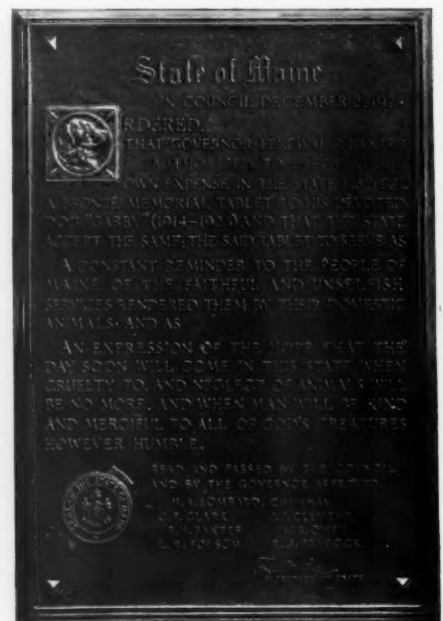 State of Maine
IN COUNCIL, DECEMBER
ORDERED,
THAT GOVERNOR PERCIVAL P. BAXTER
OWN EXPENSE IN THE STATE
A BRONZE MEMORIAL TABLET TO HIS DEVOTED
DOG "GARRY" (1914-1923) AND THAT THE STATE
ACCEPT THE SAME; THE SAID TABLET TO SERVE AS
A CONSTANT REMINDER TO THE PEOPLE OF
MAINE OF THE FAITHFUL AND UNSELFISH
SERVICES RENDERED THEM BY THEIR DOMESTIC
ANIMALS· AND AS
AN EXPRESSION OF THE HOPE THAT THE
DAY SOON WILL COME IN THIS STATE WHEN
CRUELTY TO, AND NEGLECT OF ANIMALS WILL
BE NO MORE, AND WHEN MAN WILL BE KIND
AND MERCIFUL TO ALL OF GOD'S CREATURES
HOWEVER HUMBLE.
READ AND PASSED BY THE COUNCIL,
AND BY THE GOVERNOR APPROVED,
H. A. LOMBARD, CHAIRMAN
CLARK CLEMENT
BAXTER
FOLSOM